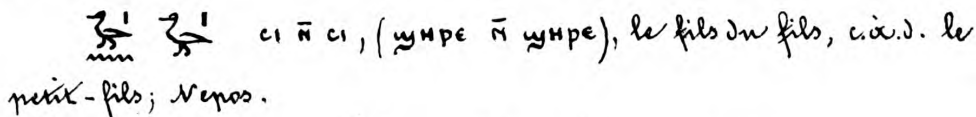 𓅭𓏤𓈖 𓅭𓏤 ⲥⲓ ⲛ̄ ⲥⲓ, (ϣⲏⲣⲉ ⲛ̄ ϣⲏⲣⲉ), le fils du fils, c.à.d. le
petit-fils; Nepos.